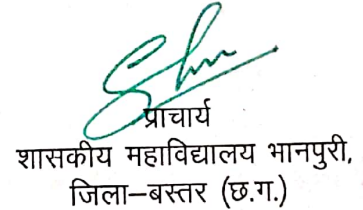 प्राचार्य
शासकीय महाविद्यालय भानपुरी,
जिला–बस्तर (छ.ग.)